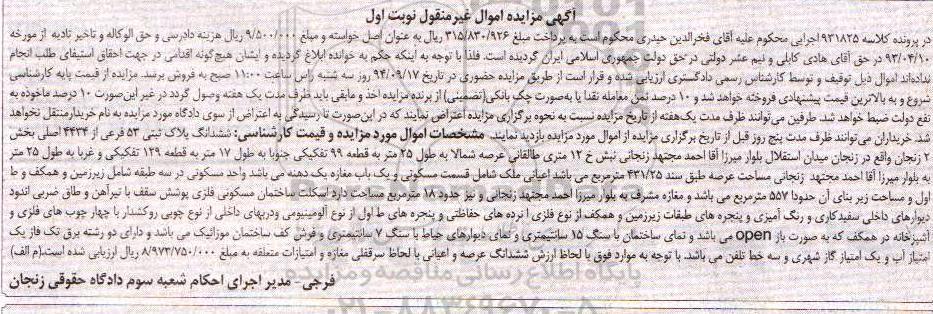 آگهی مزایده اموال غیرمنقول نوبت اول
در پرونده کلاسه ۹۳۱۸۲۵ اجرایی محکوم علیه آقای فخرالدین حیدری محکوم است به پرداخت مبلغ ۳۱۵/۸۳۰/۹۲۶ ریال به عنوان اصل خواسته و مبلغ ۹/۵۰۰/۰۰۰ ریال هزینه دادرسی و حق الوکاله و تاخیر تادیه از مورخه
۹۳/۰۴/۱۰ در حق آقای هادی کابلی و نیم عشر دولتی در حق دولت جمهوری اسلامی ایران گردیده است. فلذا با توجه به اینکه حکم به خوانده ابلاغ گردیده و ایشان هیچ‌گونه اقدامی در جهت احقاق استیفای طلب انجام
نداده‌اند اموال ذیل توقیف و توسط کارشناس رسمی دادگستری ارزیابی شده و قرار است از طریق مزایده حضوری در تاریخ ۹۴/۰۹/۱۷ روز سه شنبه راس ساعت ۱۱:۰۰ صبح به فروش برسد. مزایده از قیمت پایه کارشناسی
شروع و به بالاترین قیمت پیشنهادی فروخته خواهد شد و ۱۰ درصد ثمن معامله نقدا یا به‌صورت چک بانکی(تضمینی) از برنده مزایده اخذ و مابقی باید ظرف مدت یک هفته وصول گردد در غیر این‌صورت ۱۰ درصد ماخوذه به
نفع دولت ضبط خواهد شد. طرفین می‌توانند ظرف مدت یک‌هفته از تاریخ مزایده نسبت به نحوه برگزاری مزایده اعتراض نمایند که در این‌صورت تا رسیدگی به اعتراض از سوی دادگاه مورد مزایده به نام خریدار منتقل نخواهد
شد. خریداران می‌توانند ظرف مدت پنج روز قبل از تاریخ برگزاری مزایده از اموال مورد مزایده بازدید نمایند. مشخصات اموال مورد مزایده و قیمت کارشناسی: ششدانگ پلاک ثبتی ۵۳ فرعی از ۴۴۳۴ اصلی بخش
۲ زنجان واقع در زنجان میدان استقلال بلوار میرزا آقا احمد مجتهد زنجانی نبش خ ۱۲ متری طالقانی عرصه شمالا به طول ۲۵ متر به قطعه ۹۹ تفکیکی جنوبا به طول ۱۷ متر به قطعه ۱۲۹ تفکیکی و غربا به طول ۲۵ متر
به بلوار میرزا آقا احمد مجتهد زنجانی مساحت عرصه طبق سند ۴۳۱/۲۵ مترمربع می باشد اعیانی ملک شامل قسمت مسکونی و یک باب مغازه یک دهنه می باشد واحد مسکونی در سه طبقه شامل زیرزمین و همکف و ط
اول و مساحت زیر بنای آن حدودا ۵۵۷ مترمربع می باشد و مغازه مشرف به بلوار میرزا احمد مجتهد زنجانی و نیز حدود ۱۸ مترمربع مساحت دارد اسکلت ساختمان مسکونی فلزی پوشش سقف با تیرآهن و طاق ضربی اندود
دیوارهای داخلی سفیدکاری و رنگ آمیزی و پنجره های طبقات زیرزمین و همکف از نوع فلزی ا نرده های حفاظتی و پنجره های ط اول از نوع آلومینیومی ودربهای داخلی از نوع چوبی روکشدار با چهار چوب های فلزی و
آشپزخانه در همکف که به صورت باز open می باشد و نمای ساختمان با سنگ ۱۵ سانتیمتری و نمای دیوارهای حیاط با سنگ ۷ سانتیمتری و فرش کف ساختمان موزائیک می باشد و دارای دو رشته برق تک فاز یک
امتیاز آب و یک امتیاز گاز شهری و سه خط تلفن می باشد. با توجه به موارد فوق با لحاظ ارزش ششدانگ عرصه و اعیانی با لحاظ سرقفلی مغازه و امتیازات متعلقه به مبلغ ۸/۹۷۳/۷۵۰/۰۰۰ ریال ارزیابی شده است.(م الف)
فرجی - مدیر اجرای احکام شعبه سوم دادگاه حقوقی زنجان
پایگاه اطلاع رسانی مناقصه و مزایده
۰۲۱-۸۸۳۴۹۶۷۰-۵